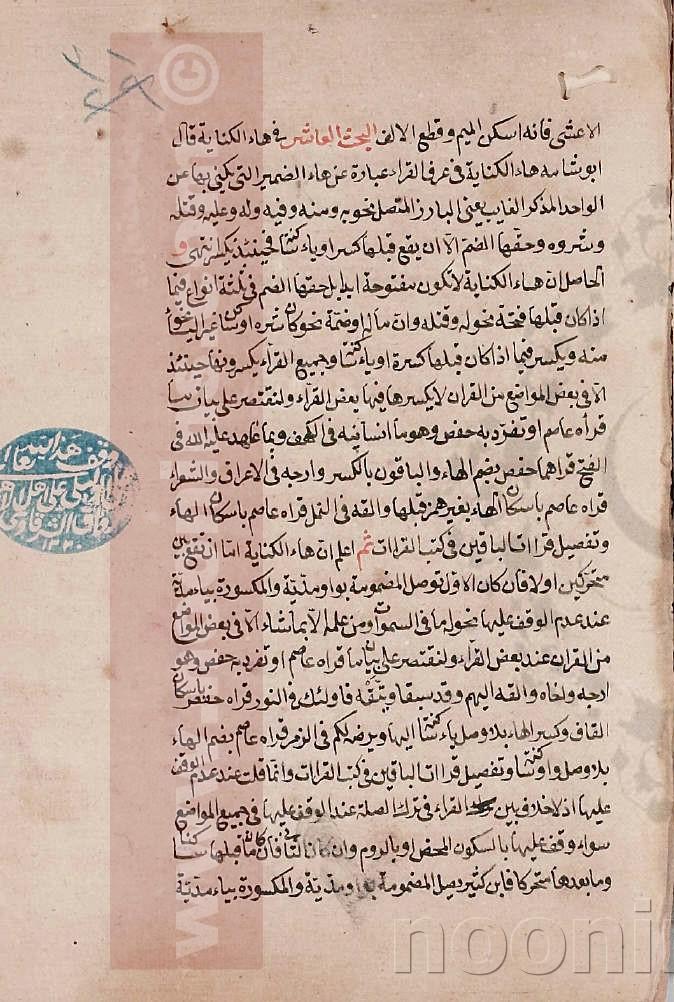 الاعشى فانه اسكن الميم وقطع الالف البحث العاشر فى هاء الكناية قال
ابو شامه هاء الكناية فى عرف القراء عبارة عن هاء الضمير التى يكنى بها عن
الواحد المذكر الغايب يعنى البارز المتصل نحو به ومنه وفيه وله وعليه وقتله
وشروه وحقها الضم الا ان يقع قبلها كسر او ياء ساكنة فحينئذ يكسر انتهى و
الحاصل ان هاء الكناية لا تكون مفتوحة ابدا بل حقها الضم فى ثلثة انواع فيما
اذا كان قبلها فتحة نحو له وقتله وان ماله او ضمة نحو كان شره او ساكن غير الياء نحو
منه ويكسر فيما اذا كان قبلها كسرة او ياء ساكنة وجميع القراء يكسرونها حينئذ
الا فى بعض المواضع من القران لا يكسرها فيها بعض القراء ولنقتصر على بيان ما
قراه عاصم او تفرد به حفص وهو ما انسانيه فى الكهف وبما عاهد عليه الله فى
الفتح قراهما حفص بضم الهاء والباقون بالكسر وارجه فى الاعراف والشعراء
قراه عاصم باسكان الهاء بغير همز قبلها والقه فى النمل قراه عاصم باسكان الهاء
وتفصيل قراات الباقين فى كتب القراات ثم اعلم ان هاء الكناية اما ان تقع بين
متحركين او لا فان كان الاول توصل المضمومة بواو مدية والمكسورة بياء مدية
عند عدم الوقف عليها نحو له ما فى السموات ومن علمه الا بما شاء الا فى بعض المواضع
من القران عند بعض القراء ولنقتصر على بيان ما قراه عاصم او تفرد به حفص وهو
ارجه واخاه والقه اليهم وقد سبقا ويتقه فاولئك فى النور قراه حفص باسكان
القاف وكسر الهاء بلا وصل ياء ساكنة اليها ويرضه لكم فى الزمر قراه عاصم بضم الهاء
بلا وصل واو ساكنة وتفصيل قراات الباقين فى كتب القراات وانما قلت عند عدم الوقف
عليها اذ لا خلاف بين القراء فى ترك الصلة عند الوقف عليها فى جميع المواضع
سواء وقف عليها بالسكون المحض او بالروم وان كان الثانى فان كان ما قبلها ساكنا
وما بعدها متحركا فابن كثير يصل المضمومة بواو مدية والمكسورة بياء مدية
noon